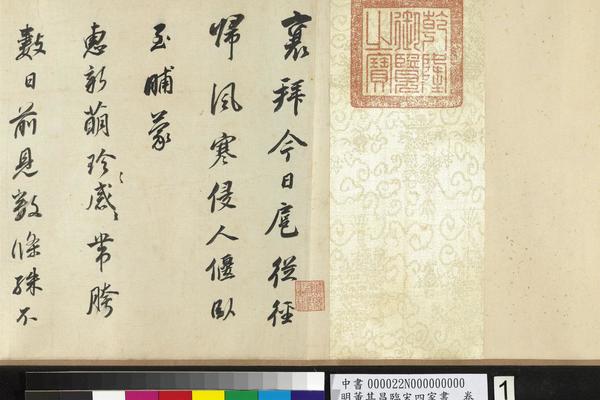 乾隆御覽之寶
襄拜今日扈從徑
歸風寒侵人偃臥
至晡蒙
惠新萌珍〻感〻帶胯
數日前見數條殊不
中書 000022N000000000
明董其昌臨宋四家書 卷
1